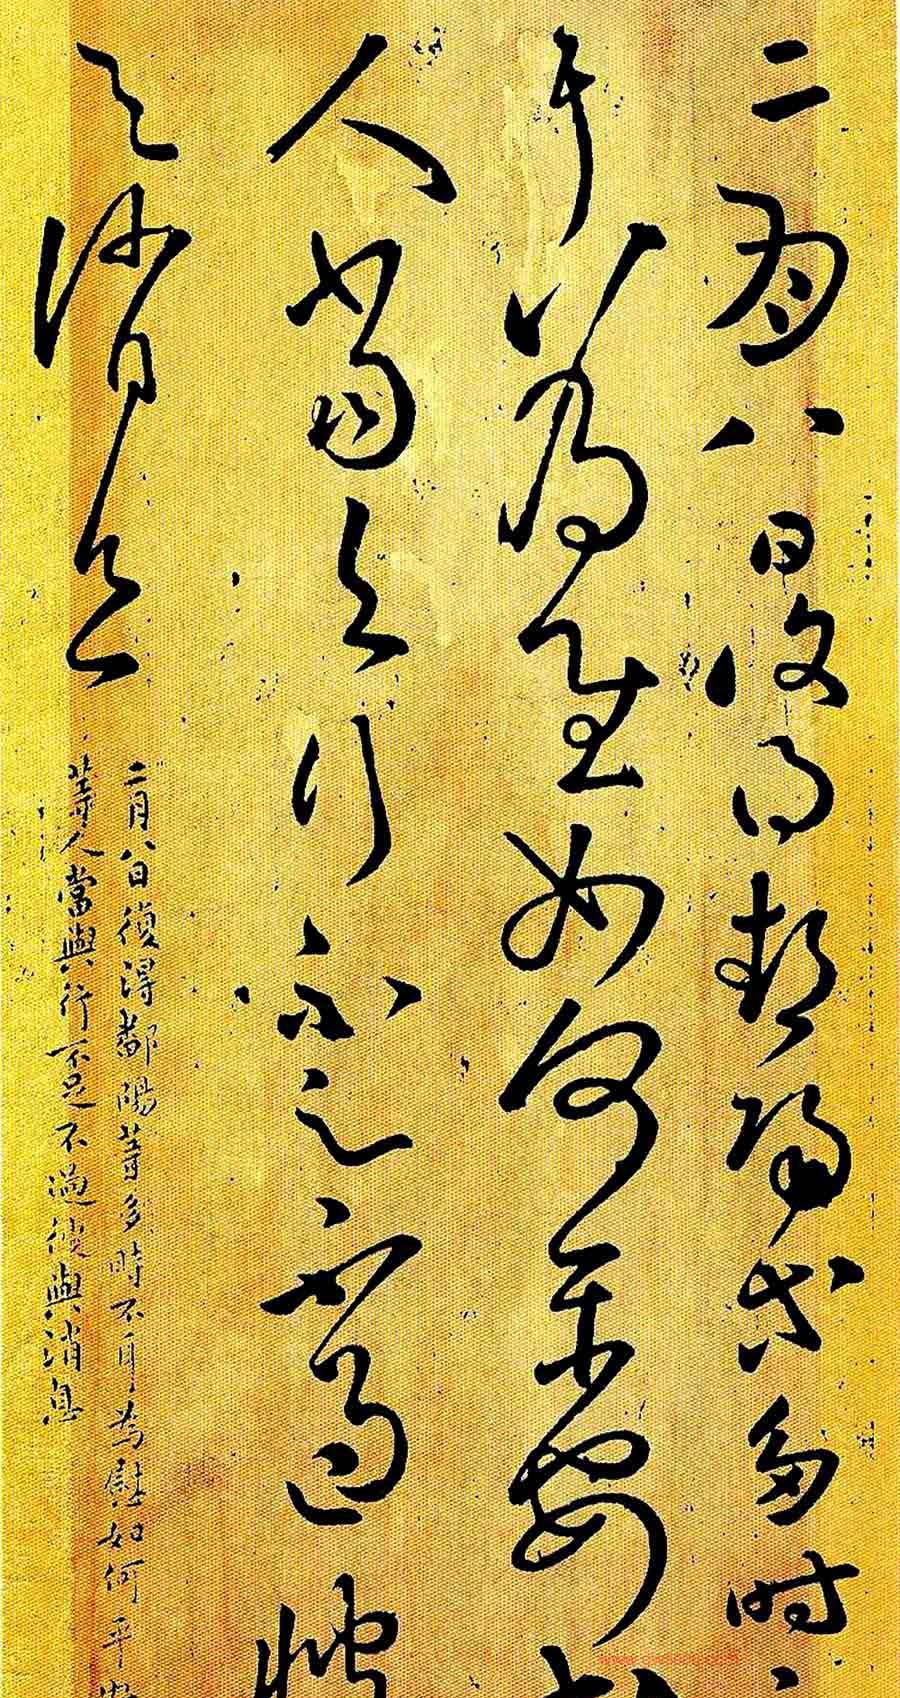 二月八日復得鄱陽等多時
耳為慰如何平安
人當與行不足不過
與消息
二月八日復得鄱陽等多時不耳為慰如何平安
等人當與行不足不過與消息